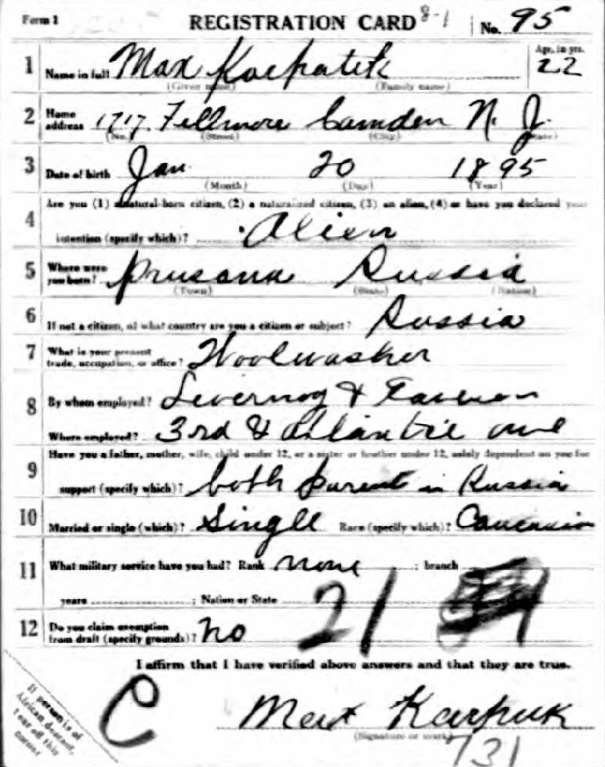 Form 1 REGISTRATION CARD 8-1 No. 95
1 Name in full Max (Given name) (Family name) Age, in yrs. 22
2 Home address 1717 Fillmore Camden N. J.
(No.) (Street) (City) (State)
3 Date of birth Jan. 20 1895
(Month) (Day) (Year)
Are you (1) a natural-born citizen, (2) a naturalized citizen, (3) an alien, (4) or have you declared your
4 intention (specify which)? Alien
5 Where were you born? Prusana Russia
(Town) (State) (Nation)
6 If not a citizen, of what country are you a citizen or subject? Russia
7 What is your present trade, occupation, or office? Woolwasher
8 By whom employed? &
Where employed? 3rd & Atlantic ave
9 Have you a father, mother, wife, child under 12, or a sister or brother under 12, solely dependent on you for
support (specify which)? both parent in Russia
10 Married or single (which)? Single Race (specify which)? Caucasian
11 What military service have you had? Rank none ; branch
years ; Nation or State
12 Do you claim exemption from draft (specify grounds)? No
21
I affirm that I have verified above answers and that they are true.
If person is of African descent, tear off this corner
C
Max Karpuk
(Signature or mark)
731